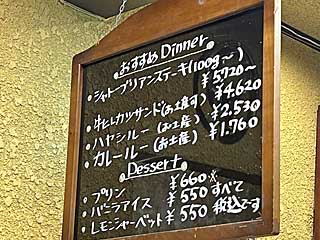 おすすめ Dinner
・シャトーブリアンステーキ(100g〜)
¥5,720〜
・牛ヒレカツサンド(お土産可) ¥4,620
・ハヤシルー(お土産) ¥2,530
・カレールー(お土産) ¥1,760
Dessert
・プリン ¥660
・バニラアイス ¥550 すべて
・レモンシャーベット ¥550 税込です